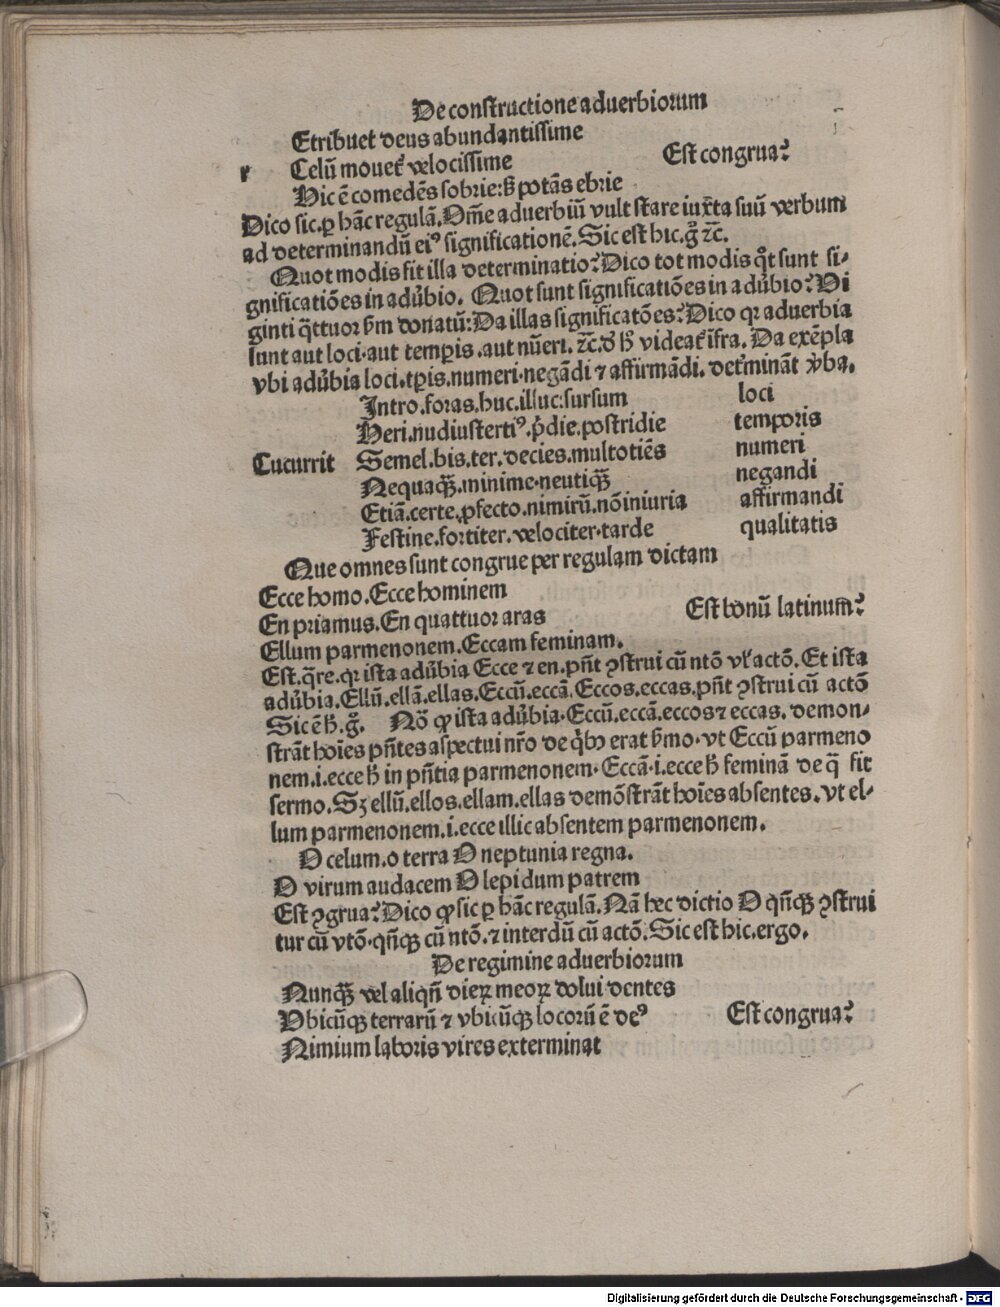 De constructione aduerbiorum
Etribuet deus abundantissime
r Celū mouet᷑ velocissime Est congrua?
Hic ē comedēs sobrie: sꝫ potās ebrie
Dico sic. ꝑ hāc regulā. Om̄e aduerbiū vult stare iuxta suū verbum
ad determinandū eiꝰ significationē. Sic est hic. gͦ ⁊c̄.
Quot modis fit illa determinatio? Dico tot modis qͦt sunt si-
gnificatiōes in adūbio. Quot sunt significatiōes in adūbio? Vi
ginti q̄ttuor ẜm donatū: Da illas significatōes? Dico qꝛ aduerbia
sunt aut loci. aut temꝑis. aut nūeri. ⁊c̄. videat᷑ īfra. Da exēpla
vbi adūbia loci. tꝑis. numeri. negādi ⁊ affirmādi. det᷑mināt v̄ba.
Intro. foras. huc. illuc. sursum loci
Heri. nudiustertiꝰ. p̄die. postridie temporis
Cucurrit Semel. bis. ter. decies. multotiēs numeri
Nequaqꝫ̄. minime. neutiqꝫ̄ negandi
Etiā. certe. ꝓfecto. nimirū. nō iniuria affirmandi
Festine. fortiter. velociter. tarde qualitatis
Que omnes sunt congrue per regulam dictam
Ecce homo. Ecce hominem
En priamus. En quattuor aras Est bonū latinum?
Ellum parmenonem. Eccam feminam.
Est. q̄re. qꝛ ista adūbia Ecce ⁊ en. pn̄t ꝯstrui cū ntō vl᷑ actō. Et ista
adūbia. Ellū. ellā. ellas. Eccū. eccā. Eccos. eccas. pn̄t ꝯstrui cū actō
Sic ē h̄. gͦ. Nō ꝙ ista adūbia. Eccū. eccā. eccos ⁊ eccas. demon-
strāt hoīes pn̄tes aspectui nr̄o de qͥbꝰ erat ẜmo. vt Eccū parmeno
nem. i. ecce h̄ in pn̄tia parmenonem. Eccā. i. ecce h̄ feminā de q̄ fit
sermo. Sꝫ ellū. ellos. ellam. ellas demōstrāt hoīes absentes. vt el-
lum parmenonem. i. ecce illic absentem parmenonem.
O celum. o terra O neptunia regna.
O virum audacem O lepidum patrem
Est ꝯgrua? Dico ꝙ sic ꝑ hāc regulā. Nā hec dictio O qn̄qꝫ ꝯstrui
tur cū vtō. qn̄qꝫ cū ntō. ⁊ interdū cū actō. Sic est hic. ergo.
De regimine aduerbiorum
Nunqꝫ̄ vel aliqn̄ dieꝝ meoꝝ dolui dentes
Vbicūqꝫ terrarū ⁊ vbicūqꝫ locorū ē deꝰ Est congrua?
Nimium laboris vires exterminat
Digitalisierung gefördert durch die Deutsche Forschungsgemeinschaft - DFG